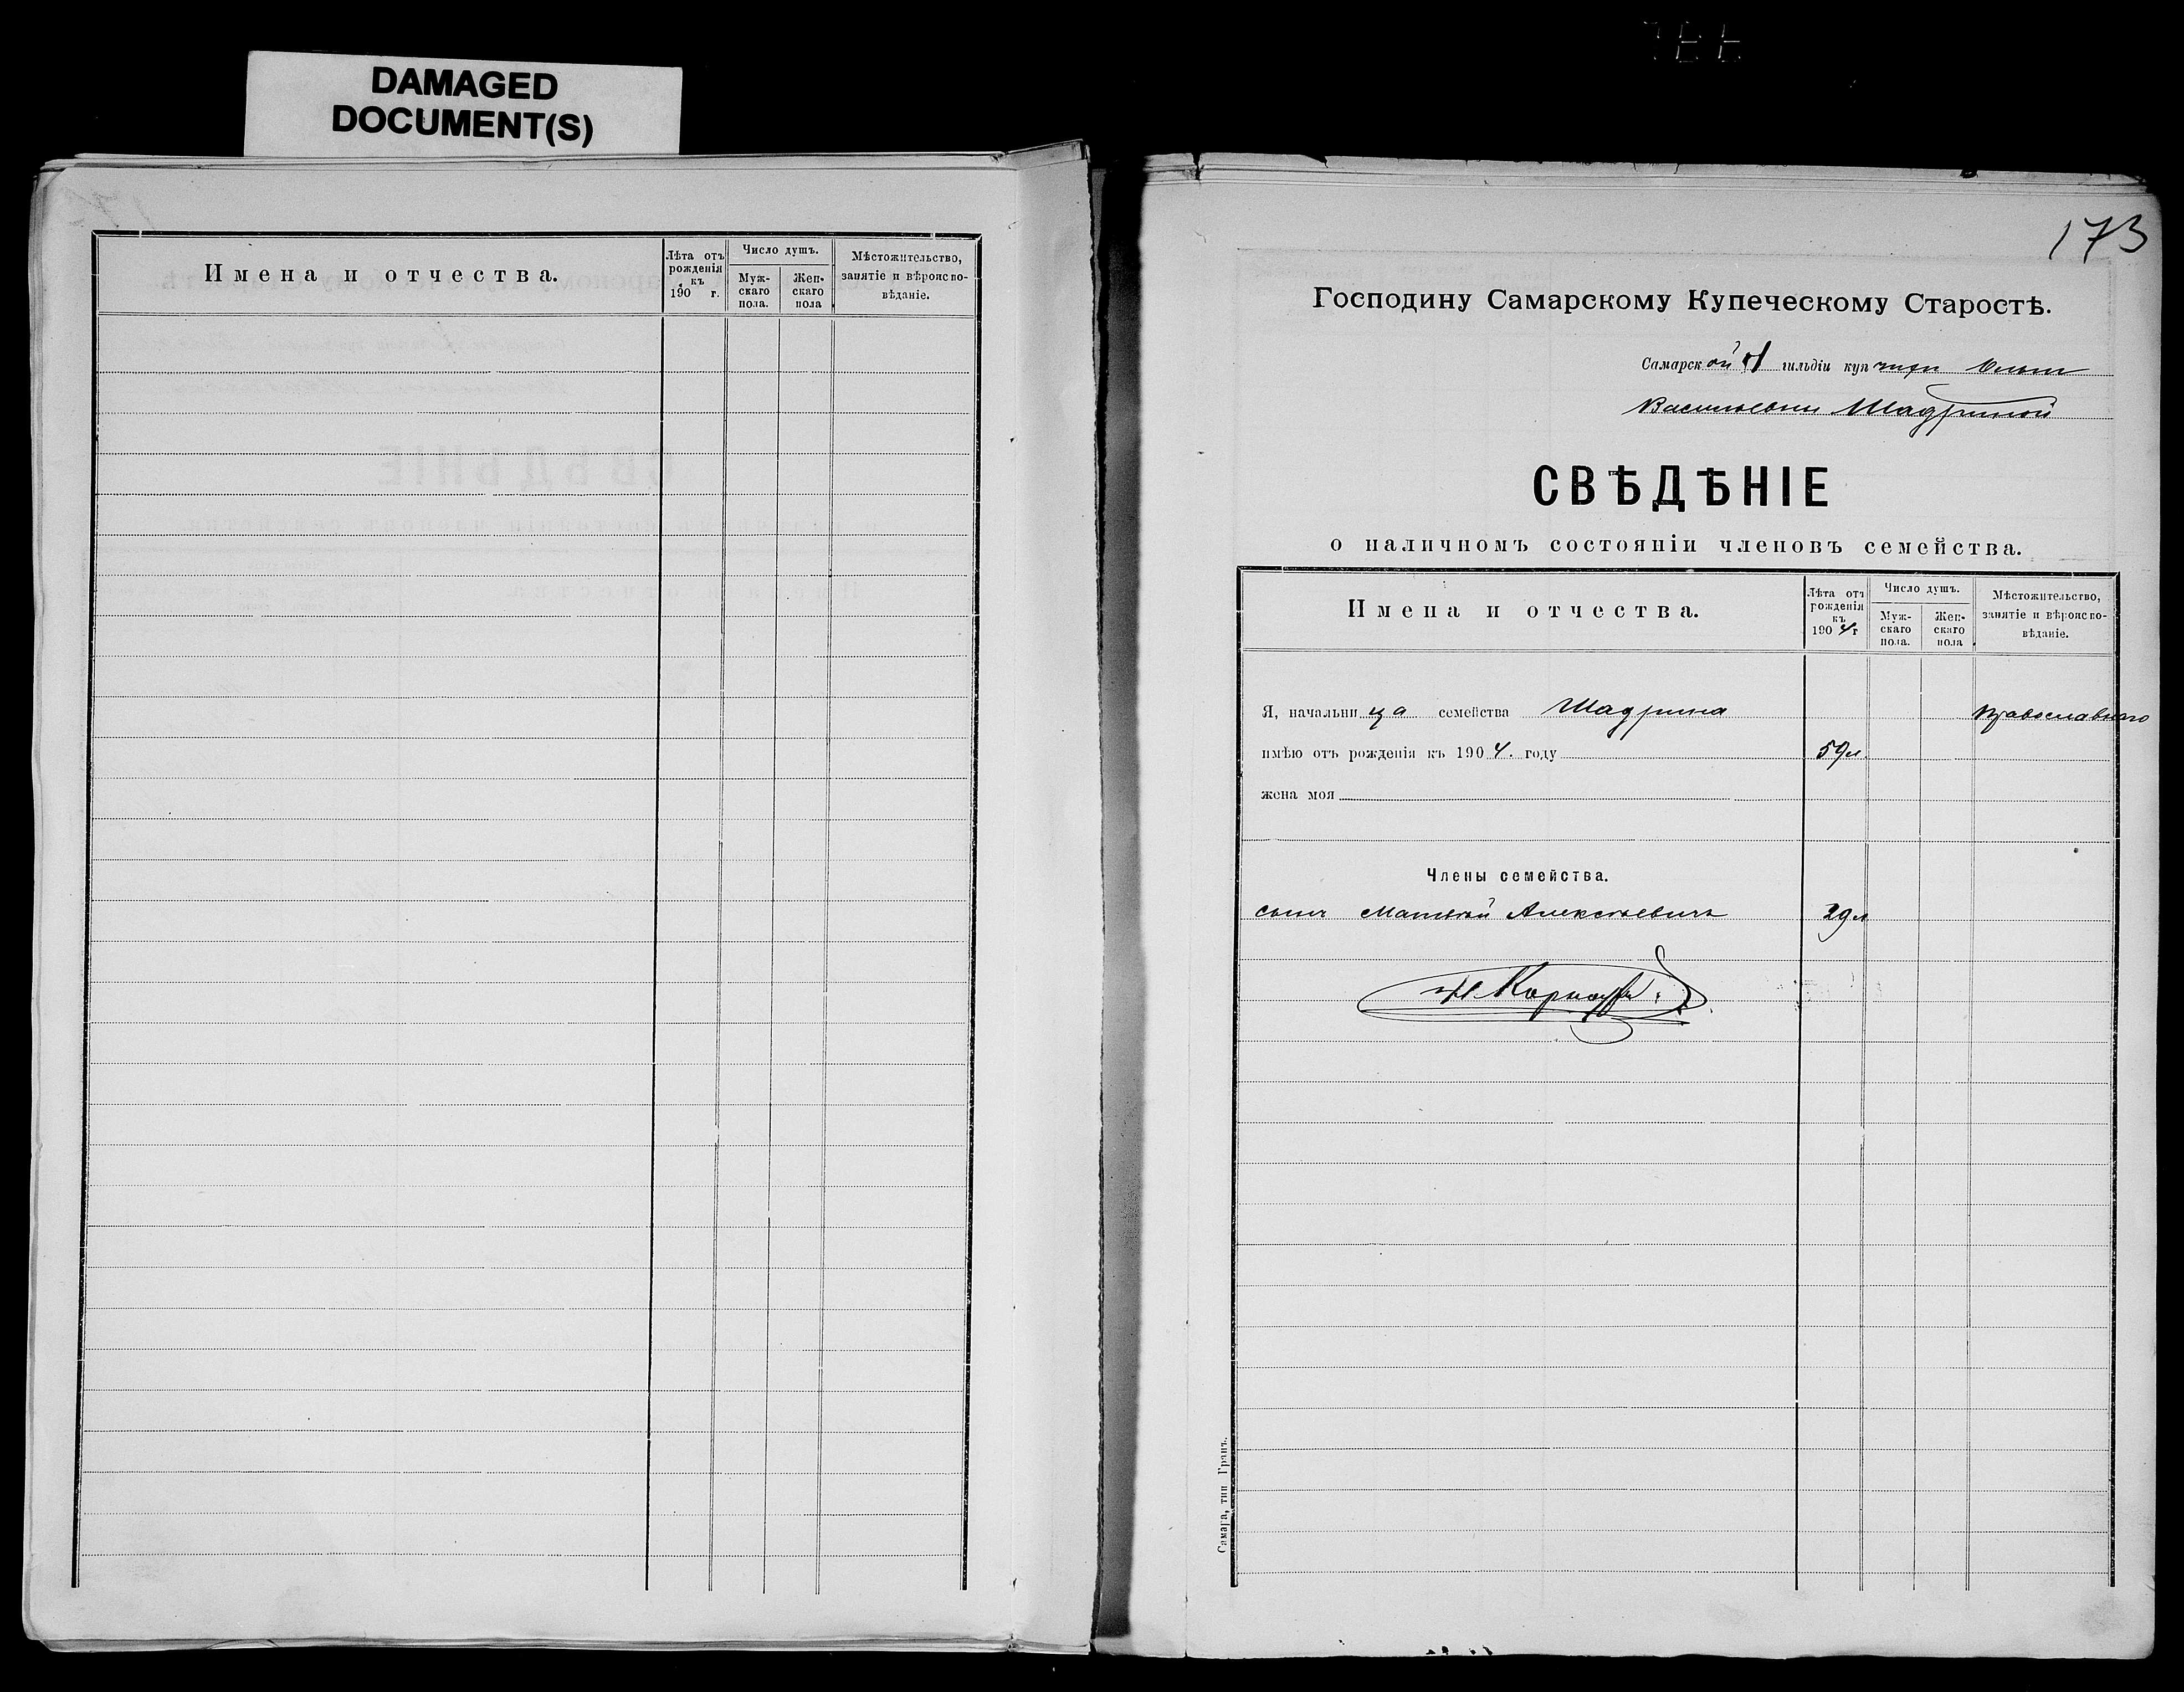 DAMAGED
DOCUMENT(S)
Имена и отчества.
Лѣта отъ рожденія къ 190 г.
Число душъ.
Муж-скаго пола.
Жен-скаго пола
Мѣстожительство, занятіе и вѣроиспо-вѣданіе.
173
Господину Самарскому Купеческому Старостѣ.
Самарской гильдіи купчихи
Васильевны Шадриной
СВѢДѢНІЕ
о наличномъ состояніи членовъ семейства.
Имена и отчества.
Лѣта отъ рожденія къ 1904 г
Число душъ.
Муж-скаго пола.
Жен-скаго пола
Мѣстожительство, занятіе и вѣроиспо-вѣданіе.
Я, начальница семейства Шадрина православнаго
имѣю отъ рожденія къ 1904. году 59 л.
жена моя
Члены семейства.
сынъ Матвѣй Алексѣевичъ 29 л
Самара, тип Гранъ.